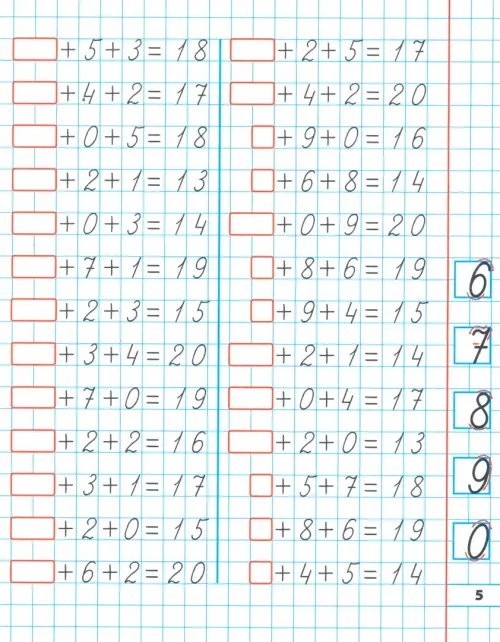 + 5 + 3 = 18
+ 4 + 2 = 17
+ 0 + 5 = 18
+ 2 + 1 = 13
+ 0 + 3 = 14
+ 7 + 1 = 19
+ 2 + 3 = 15
+ 3 + 4 = 20
+ 7 + 0 = 19
+ 2 + 2 = 16
+ 3 + 1 = 17
+ 2 + 0 = 15
+ 6 + 2 = 20
+ 2 + 5 = 17
+ 4 + 2 = 20
+ 9 + 0 = 16
+ 6 + 8 = 14
+ 0 + 9 = 20
+ 8 + 6 = 19
+ 9 + 4 = 15
+ 2 + 1 = 14
+ 0 + 4 = 17
+ 2 + 0 = 13
+ 5 + 7 = 18
+ 8 + 6 = 19
+ 4 + 5 = 14
6
7
8
9
0
5